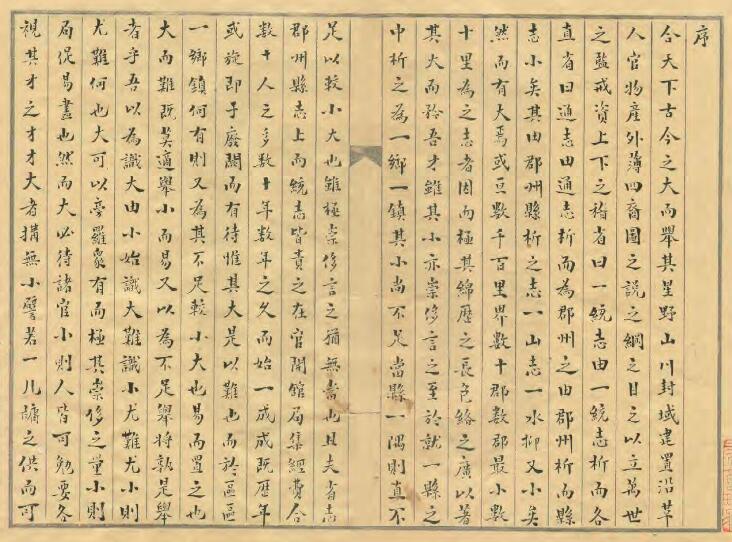 序
合天下古今之大而舉其星野山川封域建置沿革
人官物產外薄四裔圖之說之綱之目之以立萬世
之鑒戒資上下之稽省曰一統志由一統志析而各
直省曰通志由通志析而為郡州之由郡州析而縣
志小矣其由郡州縣析之志一山志一水抑又小矣
然而有大焉或亘數千百里界數十郡數郡最小數
十里為之志者因而極其綿歷之長包絡之廣以著
其大而矜吾才雖其小亦崇侈言之至於就一縣之
中析之為一鄉一鎮其小尚不足當縣一隅則直不
足以較小大也雖極崇侈言之猶無當也且夫省志
郡州縣志上而統志皆責之在官開館局集經費合
數十人之多數十年數年之久而始一成或既歷年
或旋即于廢閣而有待惟其大是以難也而於區區
一鄉鎮何有則又為其不足較小大也易而置之也
大而難既莫適舉小而易又以為不足舉將孰是舉
者乎吾以為識大由小始識大難識小尤難尤小則
尤難何也大可以旁羅眾有而極其崇侈之量小則
局促易盡也然而大必待諸官小則人皆可勉要各
視其才之才才大者搆無小譬若一几牖之供而可